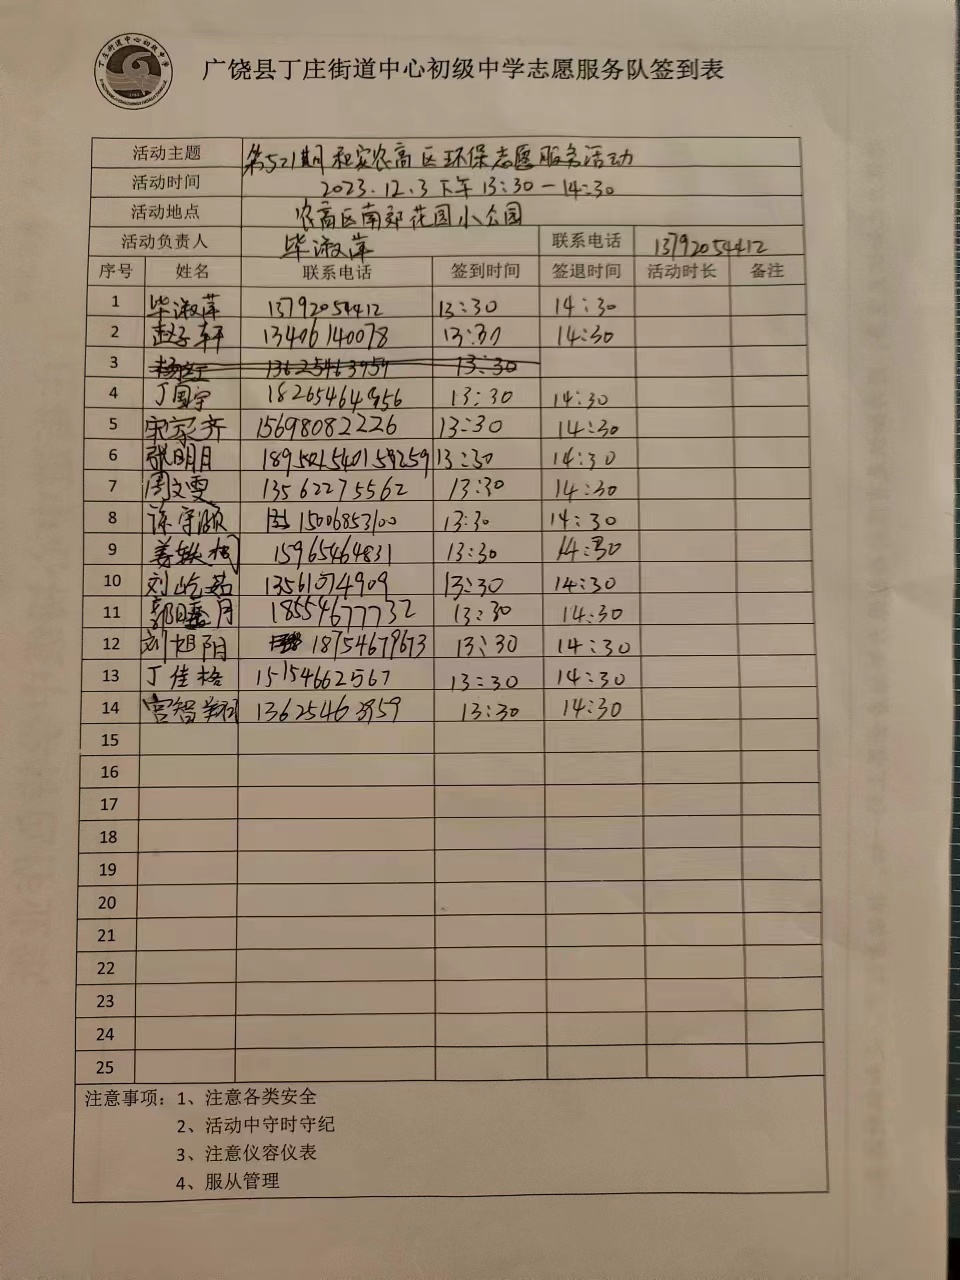 广饶县丁庄街道中心初级中学志愿服务队签到表
活动主题 第521期 和美农高区环保志愿服务活动
活动时间 2023.12.3下午13:30-14:30
活动地点 农高区南郊花园小公园
活动负责人 毕淑萍 联系电话 13792054412
序号 姓名 联系电话 签到时间 签退时间 活动时长 备注
1 毕淑萍 13792054412 13:30 14:30
2 赵子轩 13406140078 13:30 14:30
3 13625463959 13:30
4 丁国宇 18265464956 13:30 14:30
5 宋家齐 15698082226 13:30 14:30
6 张明月 13:30 14:30
7 周文雯 13562275562 13:30 14:30
8 15006853100 13:30 14:30
9 15965464831 13:30 14:30
10 刘屹茹 13561074909 13:30 14:30
11 郭月 18554677732 13:30 14:30
12 刘旭阳 18754679673 13:30 14:30
13 丁佳格 15154662567 13:30 14:30
14 宫智翔 13625463959 13:30 14:30
15
16
17
18
19
20
21
22
23
24
25
注意事项：1、注意各类安全
2、活动中守时守纪
3、注意仪容仪表
4、服从管理